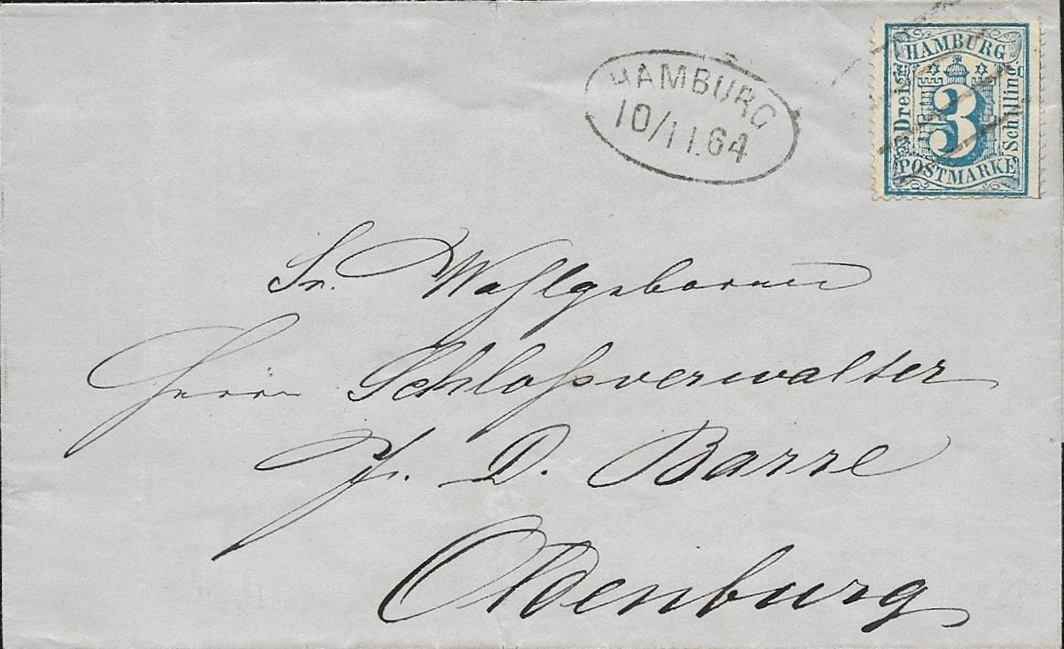 HAMBURG
10/11.64
HAMBURG
Drei
3
Schilling
POSTMARKE
Sr. Wohlgeboren
Herrn Schloßverwalter
D. Barre
Oldenburg